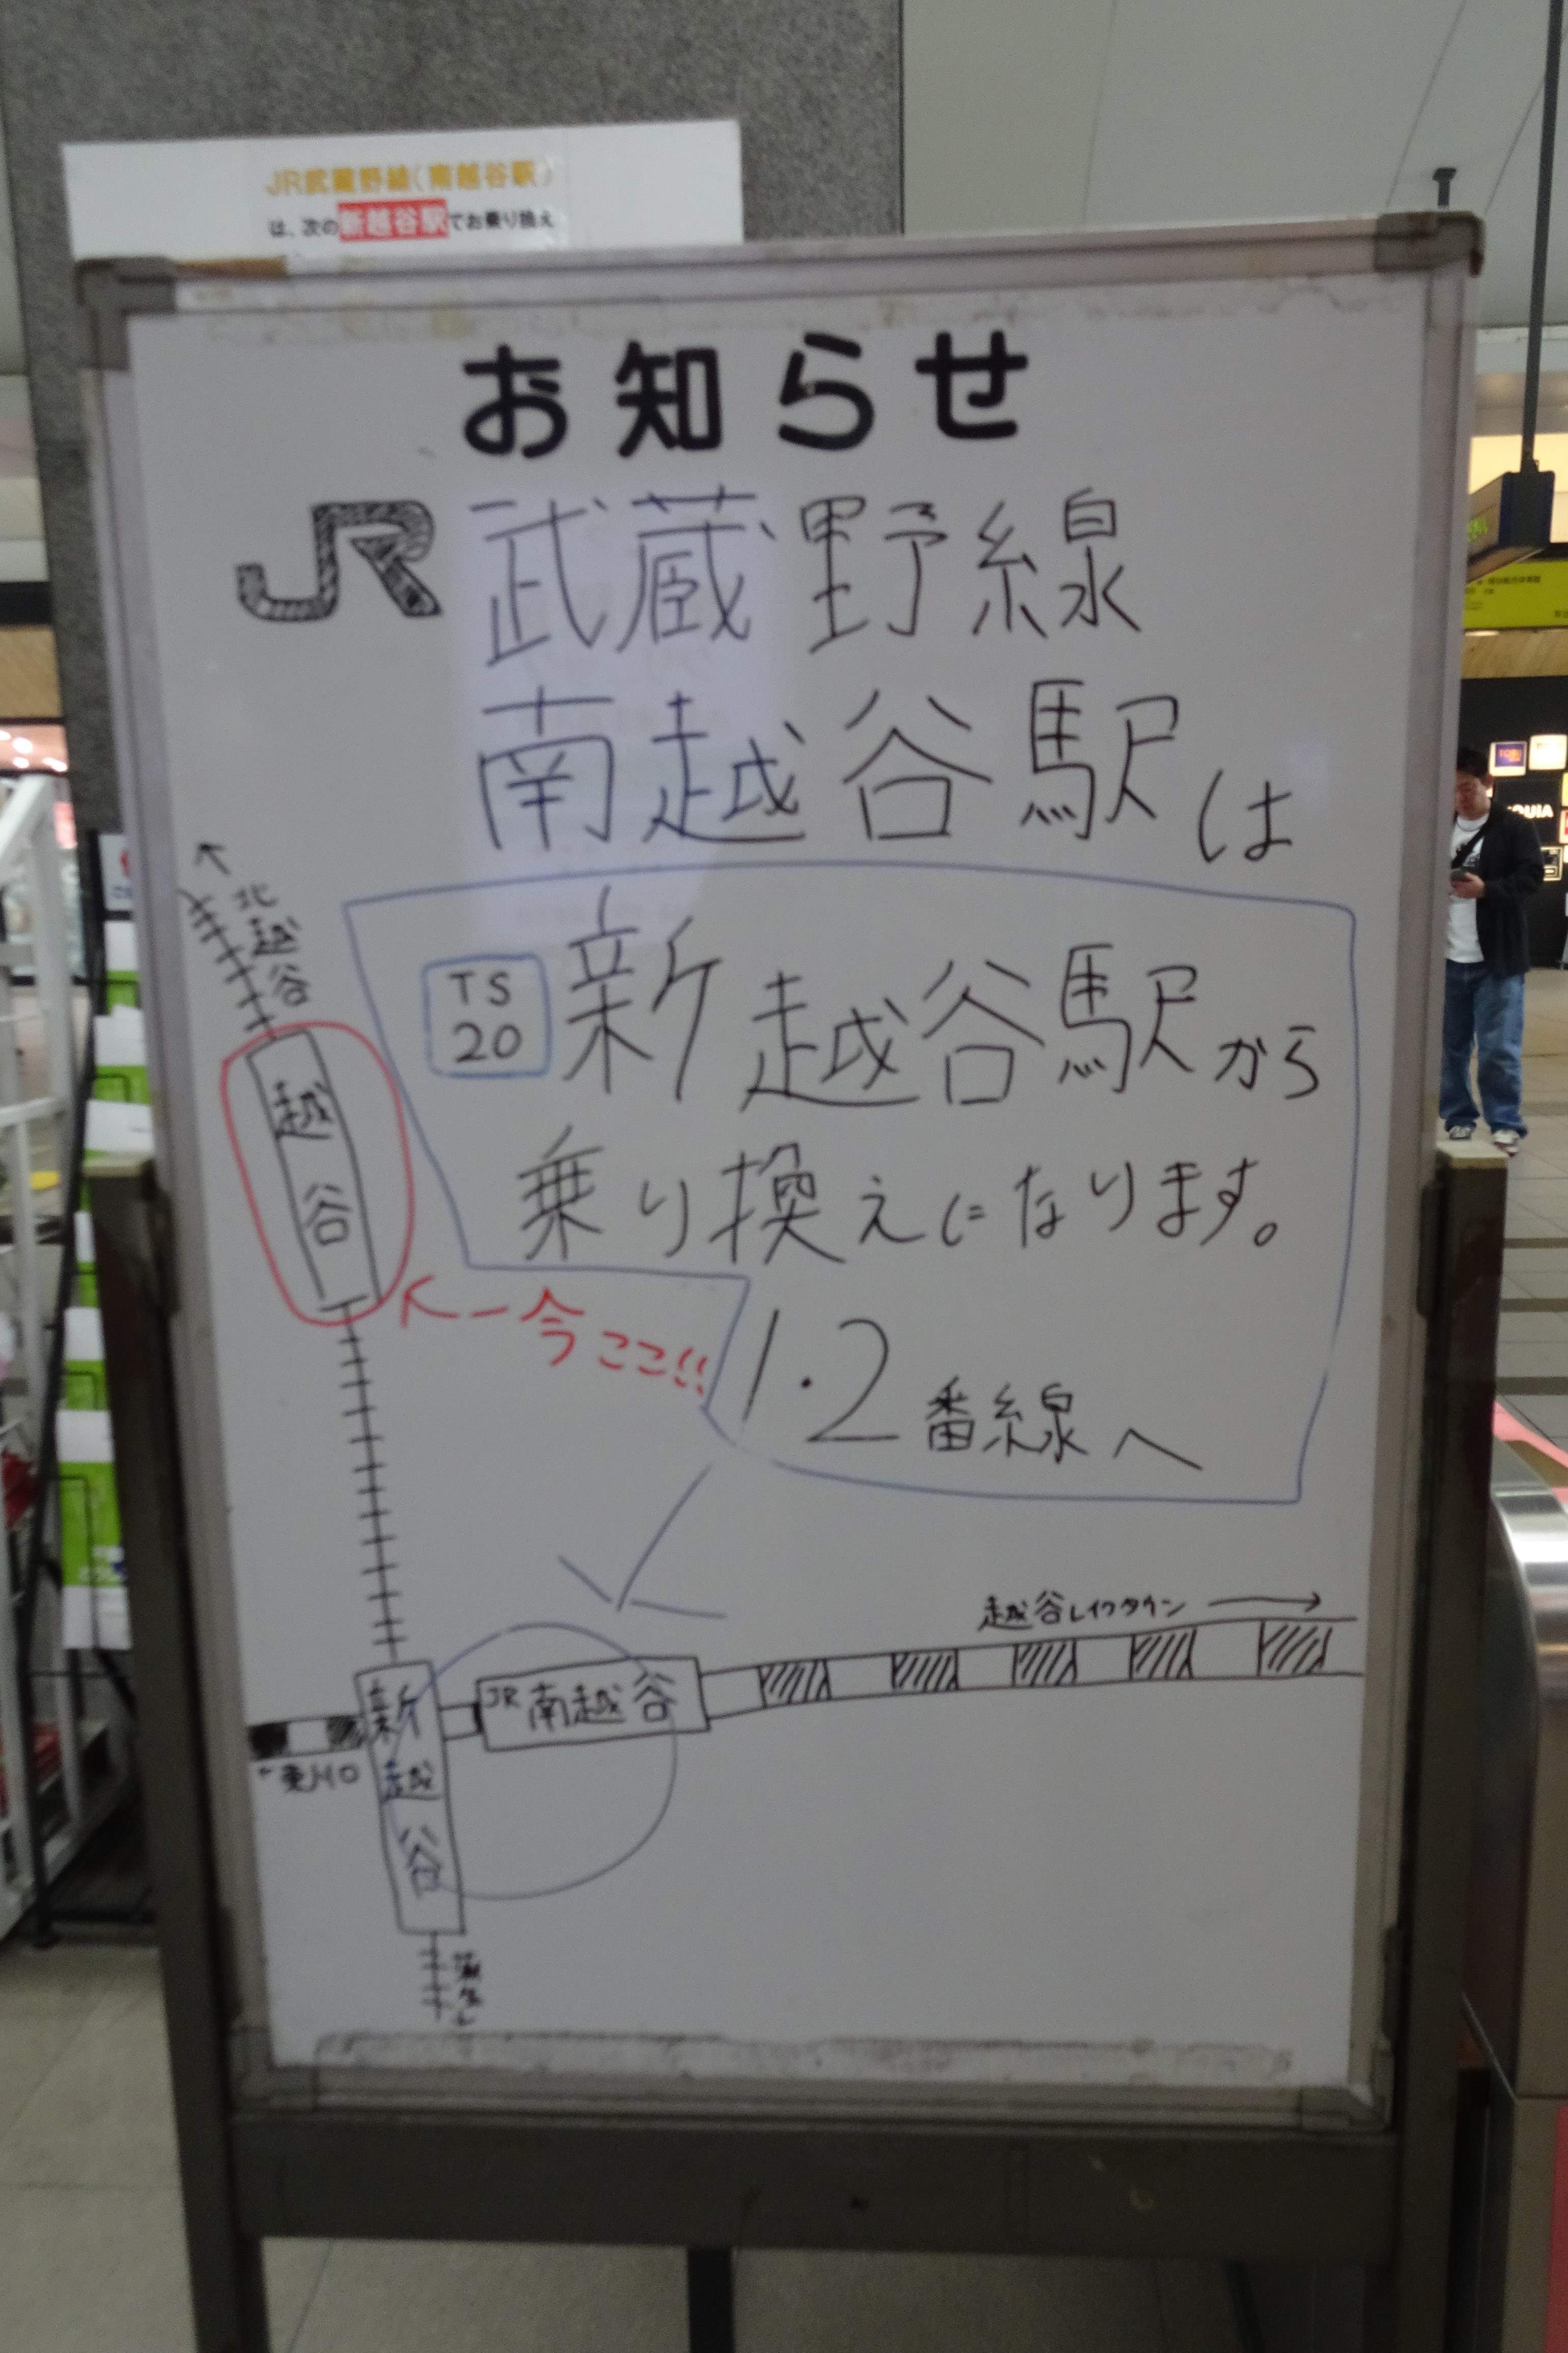 JR武蔵野線(南越谷駅)
は、次の新越谷駅でお乗り換え
お知らせ
JR 武蔵野線
南越谷駅は
TS
20
新越谷駅から
乗り換えになります。
1・2番線へ
↑北越谷
越谷
←今ココ!!
越谷レイクタウン→
JR南越谷
新越谷
←東川口
蒲生